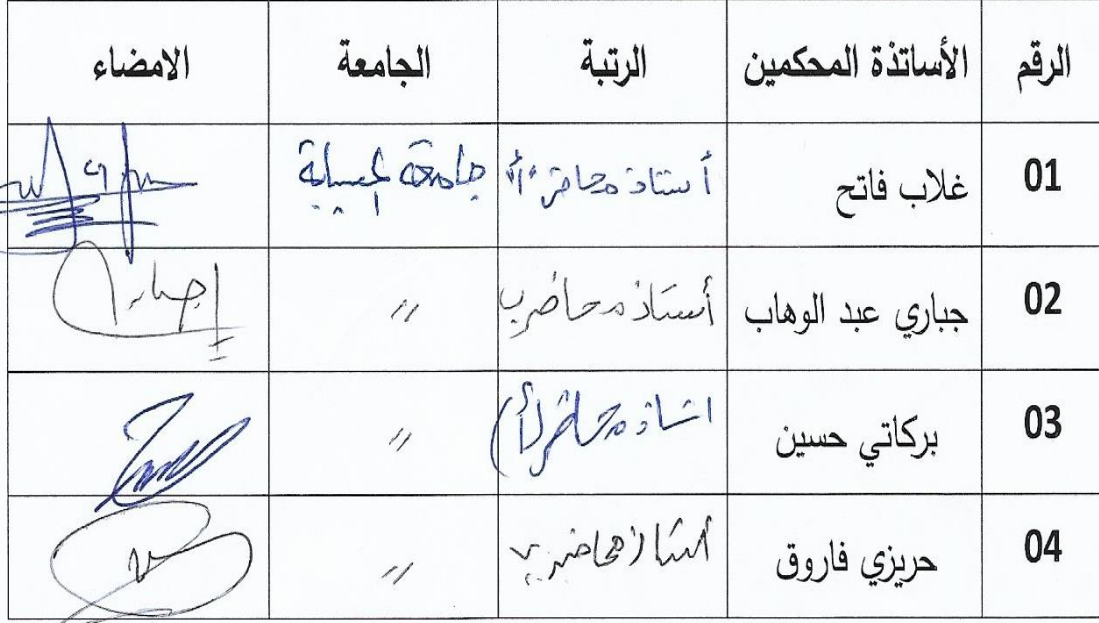 الرقم الأساتذة المحكمين الرتبة الجامعة الامضاء
01 غلاب فاتح أستاذ محاضر "أ" جامعة المسيلة
02 جباري عبد الوهاب أستاذ محاضر ب //
03 بركاتي حسين استاذ محاضر (أ) //
04 حريزي فاروق أستاذ محاضر ب //